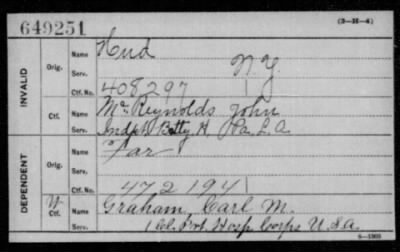 649251
(3-25-4)
INVALID
Orig.
Name Hud
Serv. N.Y
Ctf. No. 408297
Ctf.
Name McReynolds John
Serv. Indpt Batty H Pa. L.A.
DEPENDENT
Orig.
Name Far
Serv.
Ctf. No. 472194
W Ctf.
Name Graham, Carl M.
Serv. 1 Cl. Pvt. Hosp. Corps U.S.A.